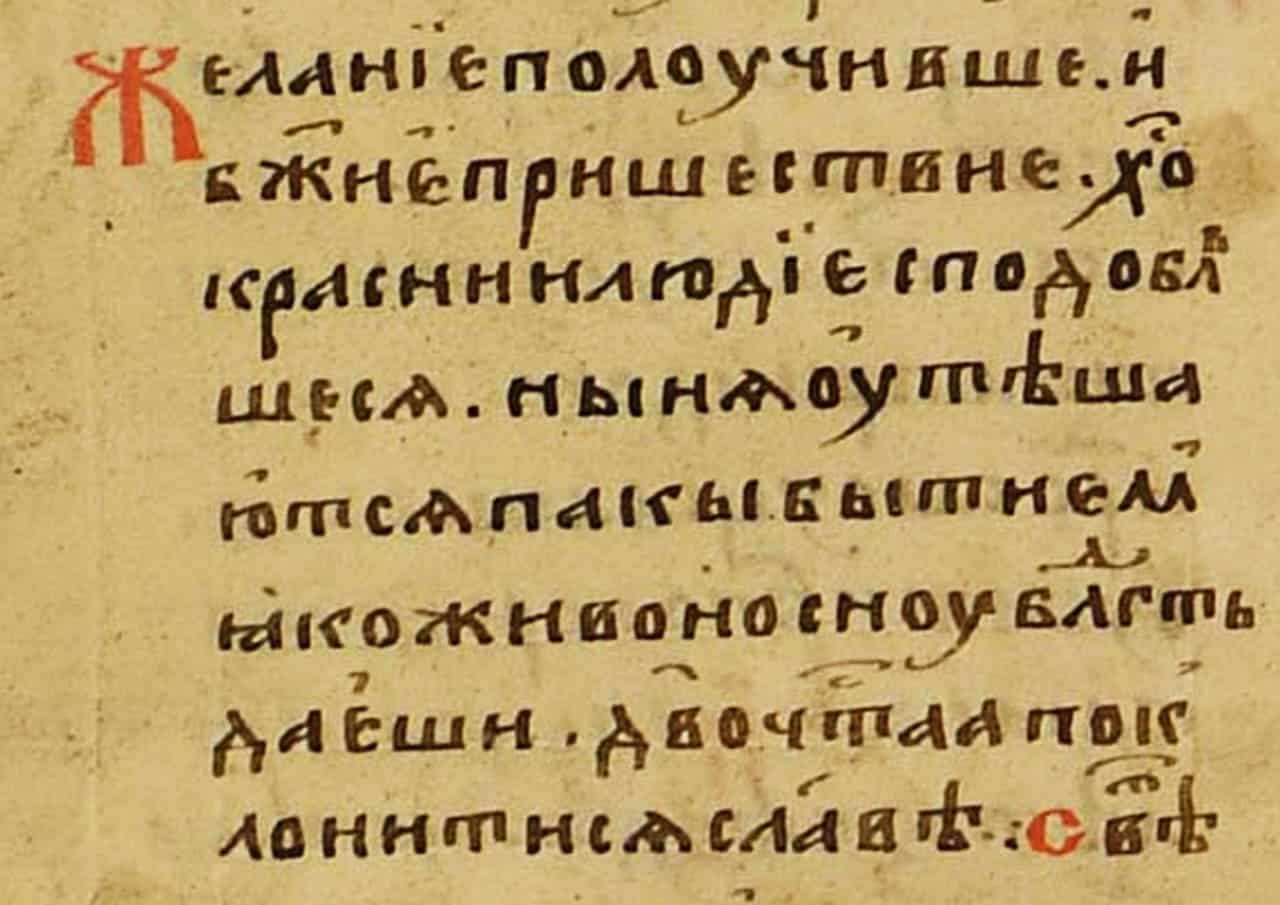 Желанїе полоучивше. и
бж҃ие пришествие. х҃о
красни и людїе сподобл꙽ь
шесѧ. ны нѧ оутѣша
ютсѧ пакы бытием꙽
ꙗко живоносноу бл҃гсть
даеши. дв҃о чт҃аа пок
лонитисѧ славѣ. свт҃ѣ